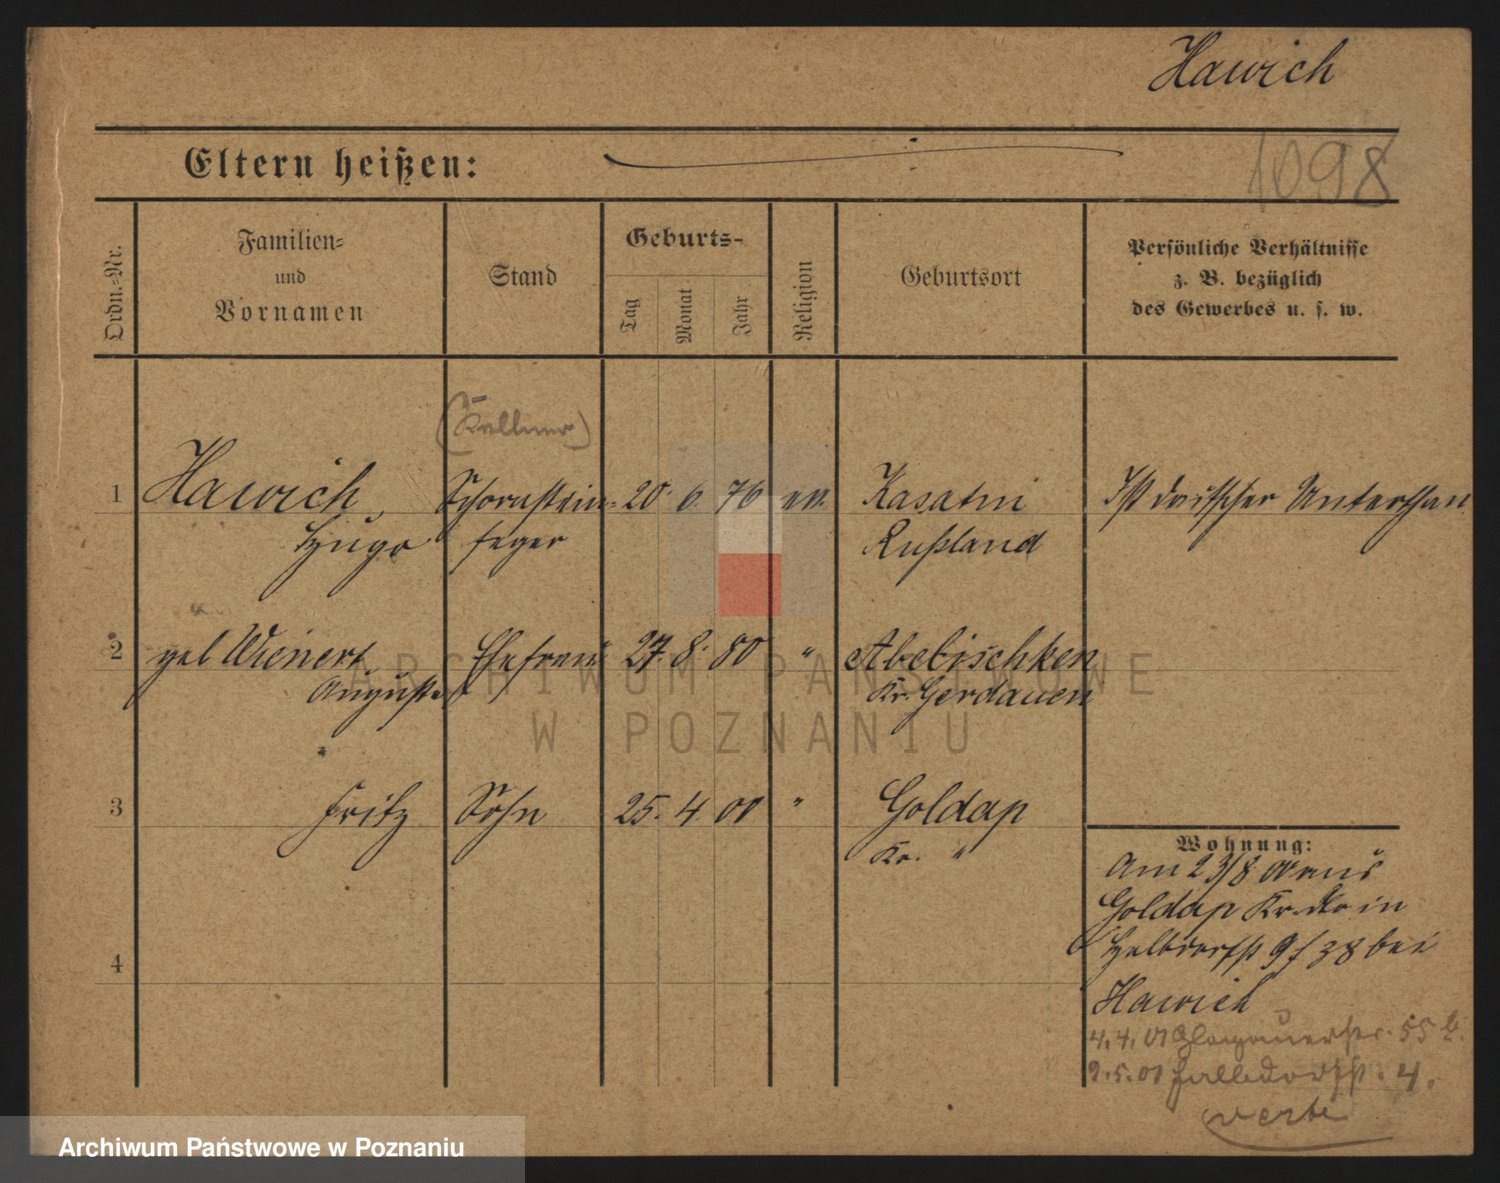 Hawich
Eltern heißen:
1098
Ordn.-Nr.
Familien-
und
Vornamen
Stand
Geburts-
Tag
Monat
Jahr
Religion
Geburtsort
Persönliche Verhältnisse
z. B. bezüglich
des Gewerbes u. s. w.
(Kellner)
1 Hawich, Schornstein- 20. 6. 76 ev. Kasatni Ist deutscher Unterthan
Hugo feger Rußland
2 geb Wienert Ehefrau 27. 8. 80 " Abelischken
Auguste Kr. Gerdauen
3 Fritz Sohn 25. 4. 00 " Goldap
Kr. "
4
Wohnung:
Am 23/8 00 aus
Goldap Kr. dto in
9 38 bei
Hawich
4. 4. 01 Glogauerstr. 55
2. 5. 01 4.
verte
ARCHIWUM PAŃSTWOWE
W POZNANIU
Archiwum Państwowe w Poznaniu